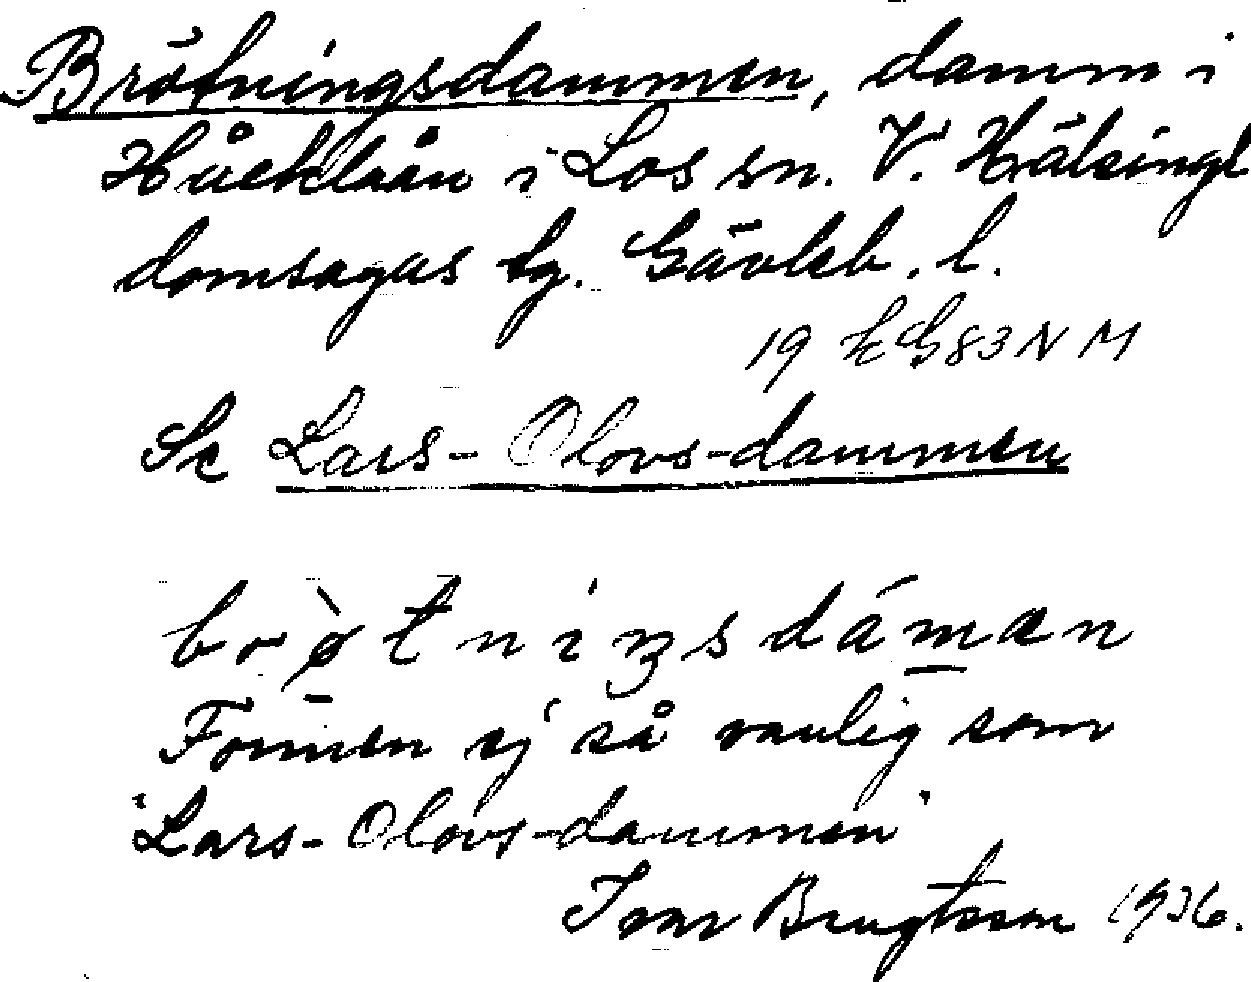 Brötningsdammen, damm i
Håcklaån i Los sn. V. Hälsingl
domsagas tg. Gävleb. l.
19 83 N M
Se Lars-Olovs-dammen
brø̀tniŋsdáman
Formen ej så vanlig som
"Lars-Olovs-dammen"
Ivar Bengtsson 1936.